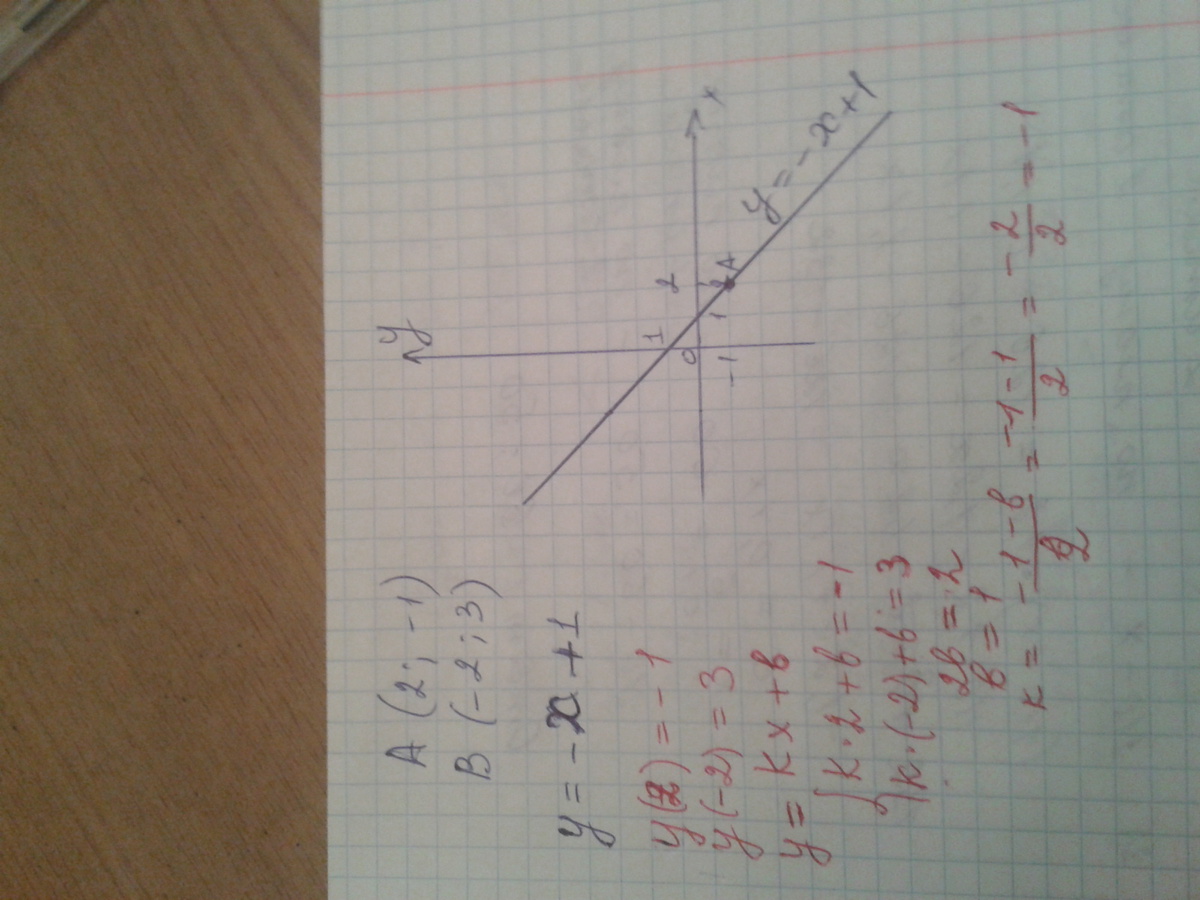 A (2; -1)
B (-2; 3)
y = -x + 1
y(2) = -1
y(-2) = 3
y = kx + b
{ k·2 + b = -1
k·(-2) + b = 3
2b = 2
b = 1
k = (-1 - b)/2 = (-1 - 1)/2 = -2/2 = -1
y
x
1
0
-1
1
2
2
A
y = -x + 1